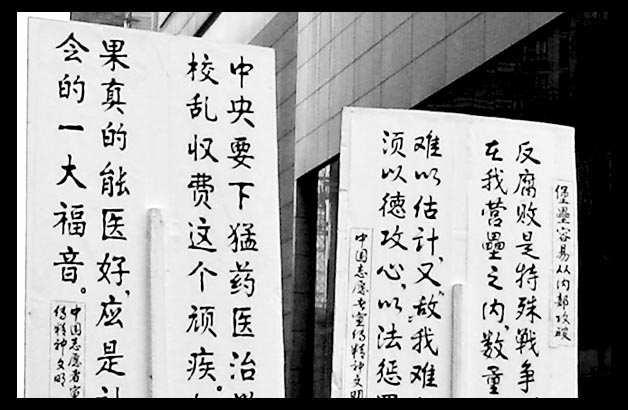 中央要下猛药医治
校乱收费这个顽疾。
果真的能医好，应是
会的一大福音。
中国志愿者宣
传精神文明
堡壘容易从内部攻破
反腐败是特殊戰争
在我营壘之内，数量
难以估计，又"敌"我难
须以德攻心，以法惩
中国志愿者宣传精神文明